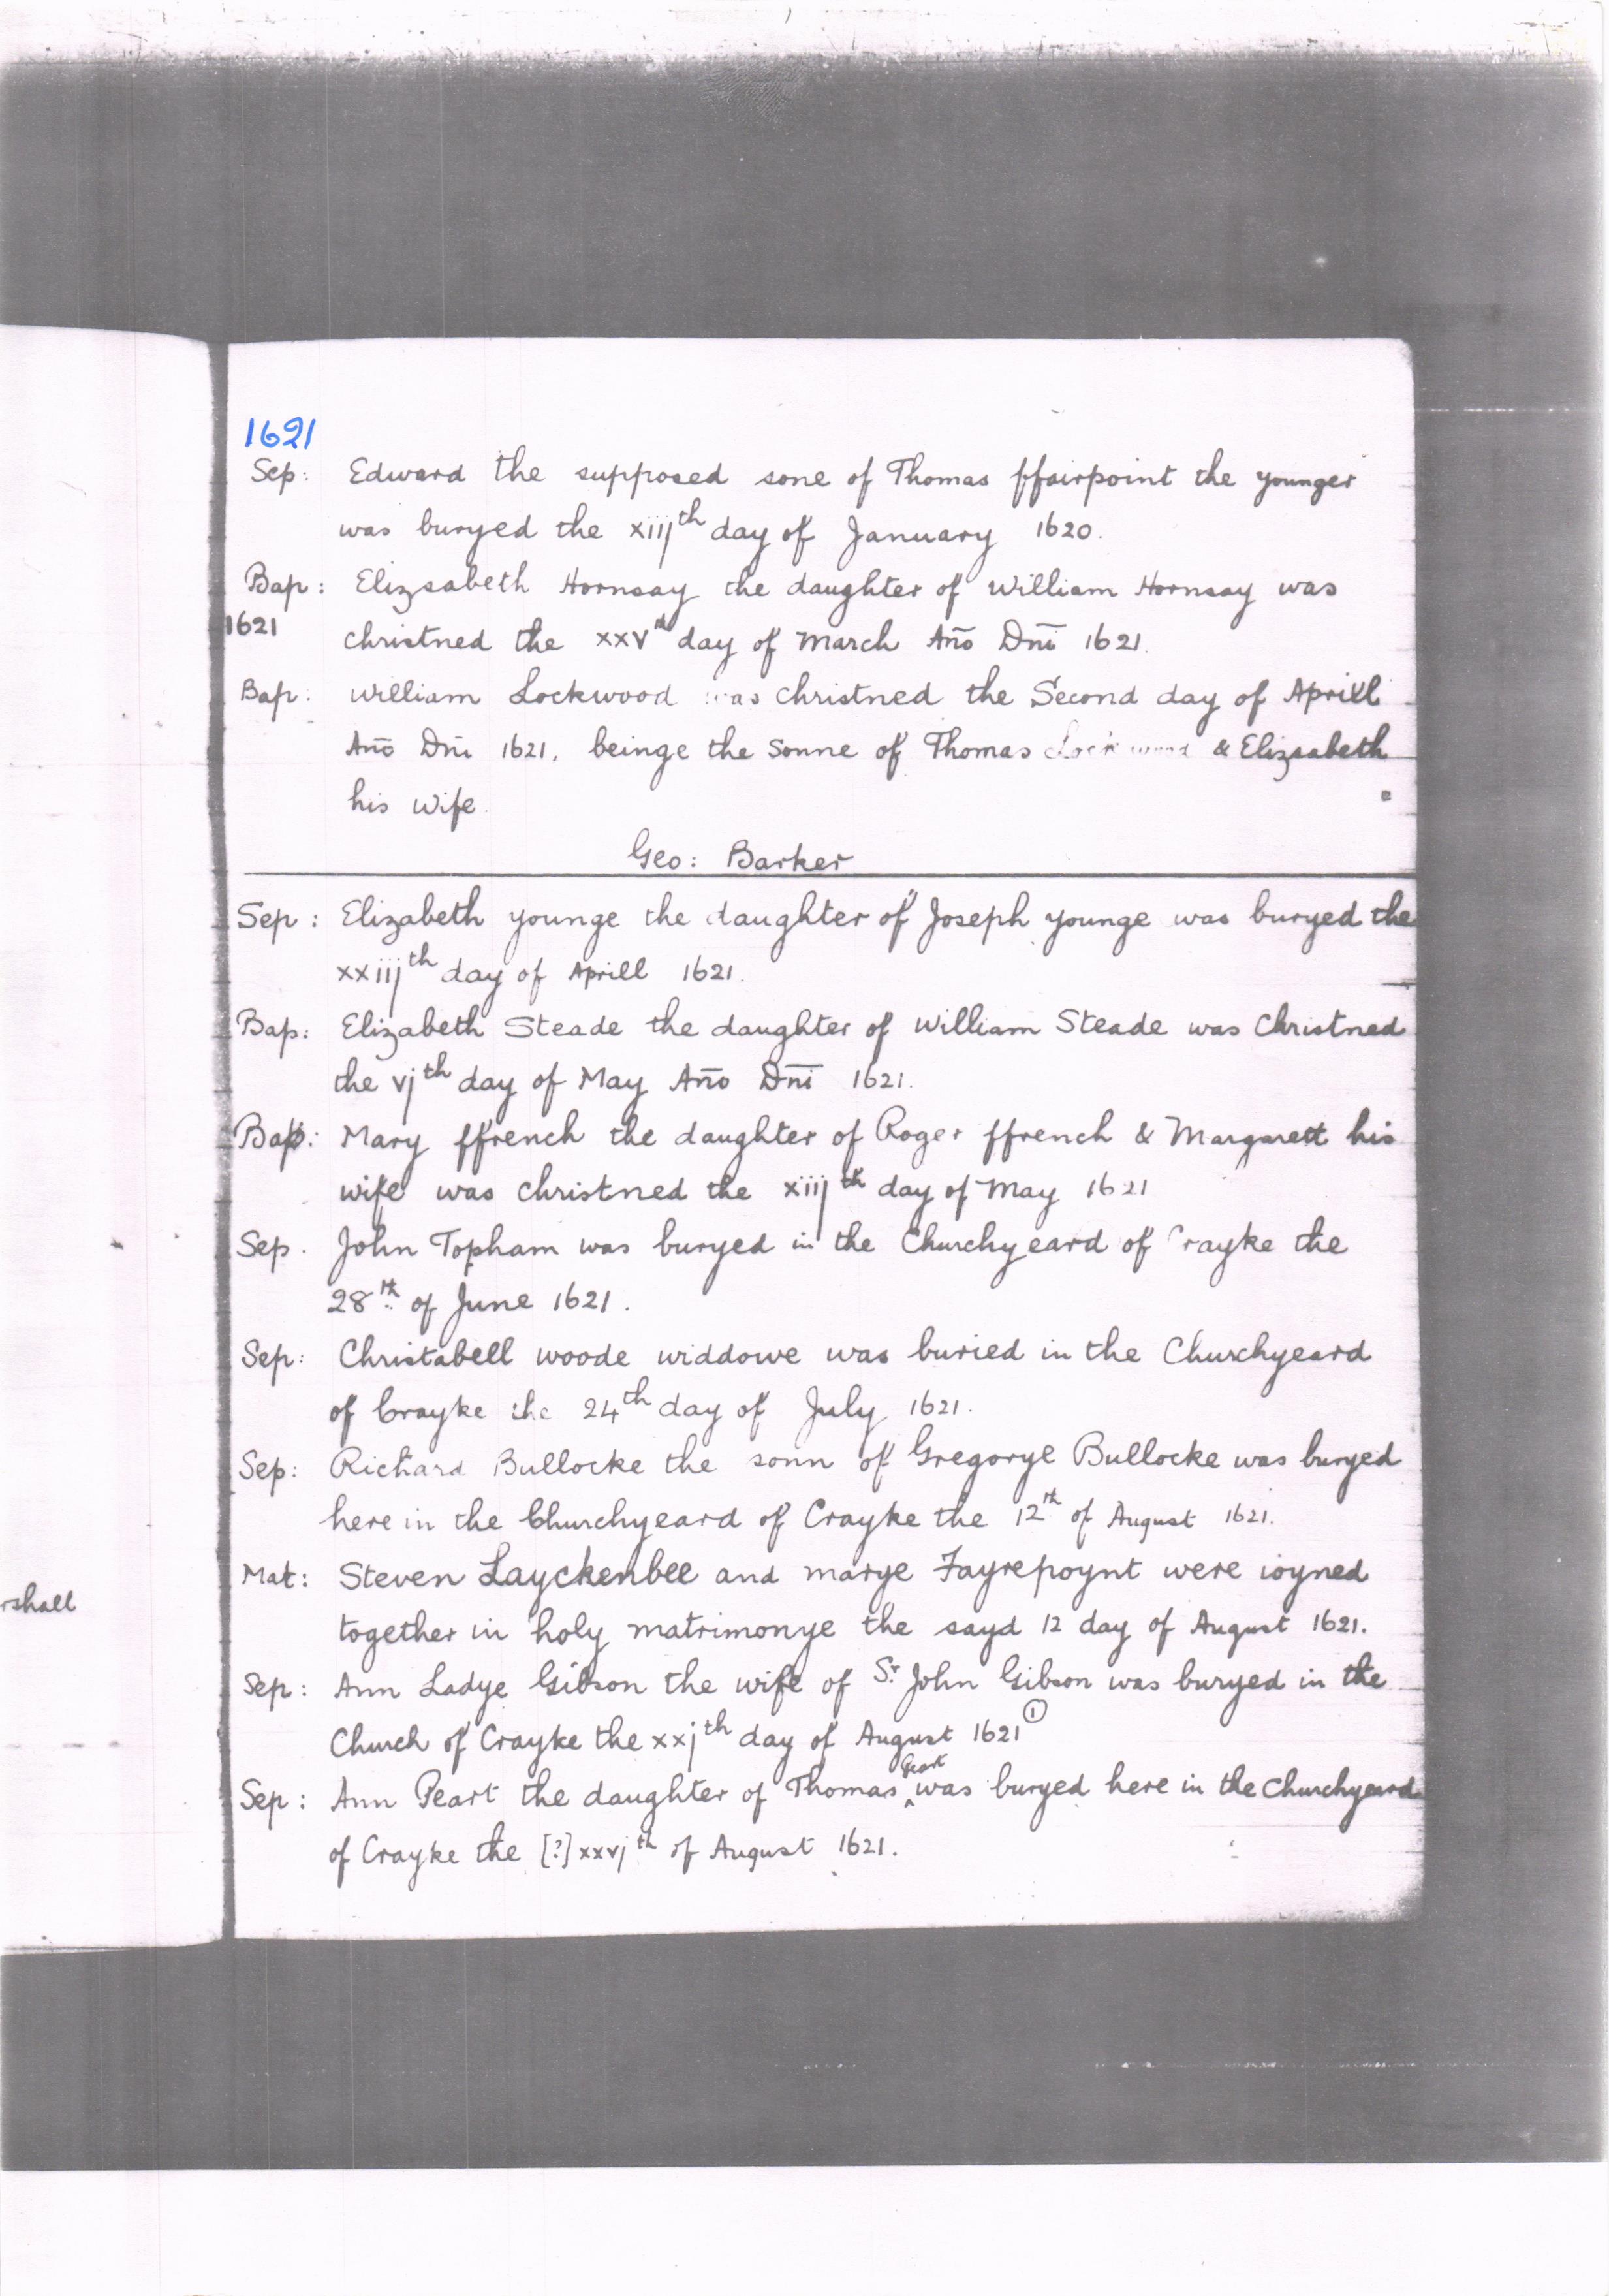 1621
Sep: Edward the supposed sone of Thomas ffairpoint the younger
was buryed the xiijth day of January 1620.
Bap: Elizsabeth Hornsay the daughter of William Hornsay was
1621 christned the xxvth day of March Año Dñi 1621.
Bap: William Lockwood was christned the Second day of Aprill
Año Dñi 1621, beinge the Sonne of Thomas Lockwood & Elizsabeth
his wife.
Geo: Barker
Sep: Elizabeth younge the daughter of Joseph younge was buryed the
xxiijth day of Aprill 1621.
Bap: Elizabeth Steade the daughter of William Steade was Christned
the vjth day of May Año Dñi 1621.
Bap: Mary ffrench the daughter of Roger ffrench & Margarett his
wife was christned the xiijth day of May 1621
Sep. John Topham was buryed in the Churchyeard of Crayke the
28th of June 1621.
Sep: Christabell woode widdowe was buried in the Churchyeard
of Crayke the 24th day of July 1621.
Sep: Richard Bullocke the sonn of Gregorye Bullocke was buryed
here in the Churchyeard of Crayke the 12th of August 1621.
Mat: Steven Layckenbee and marye Fayrepoynt were ioyned
together in holy matrimonye the sayd 12 day of August 1621.
rshall
Sep: Ann Ladye Gibson the wife of Sr. John Gibson was buryed in the
Church of Crayke the xxjth day of August 1621 ①
Sep: Ann Peart the daughter of Thomas ^Peart was buryed here in the Churchyeard
of Crayke the [?] xxvjth of August 1621.